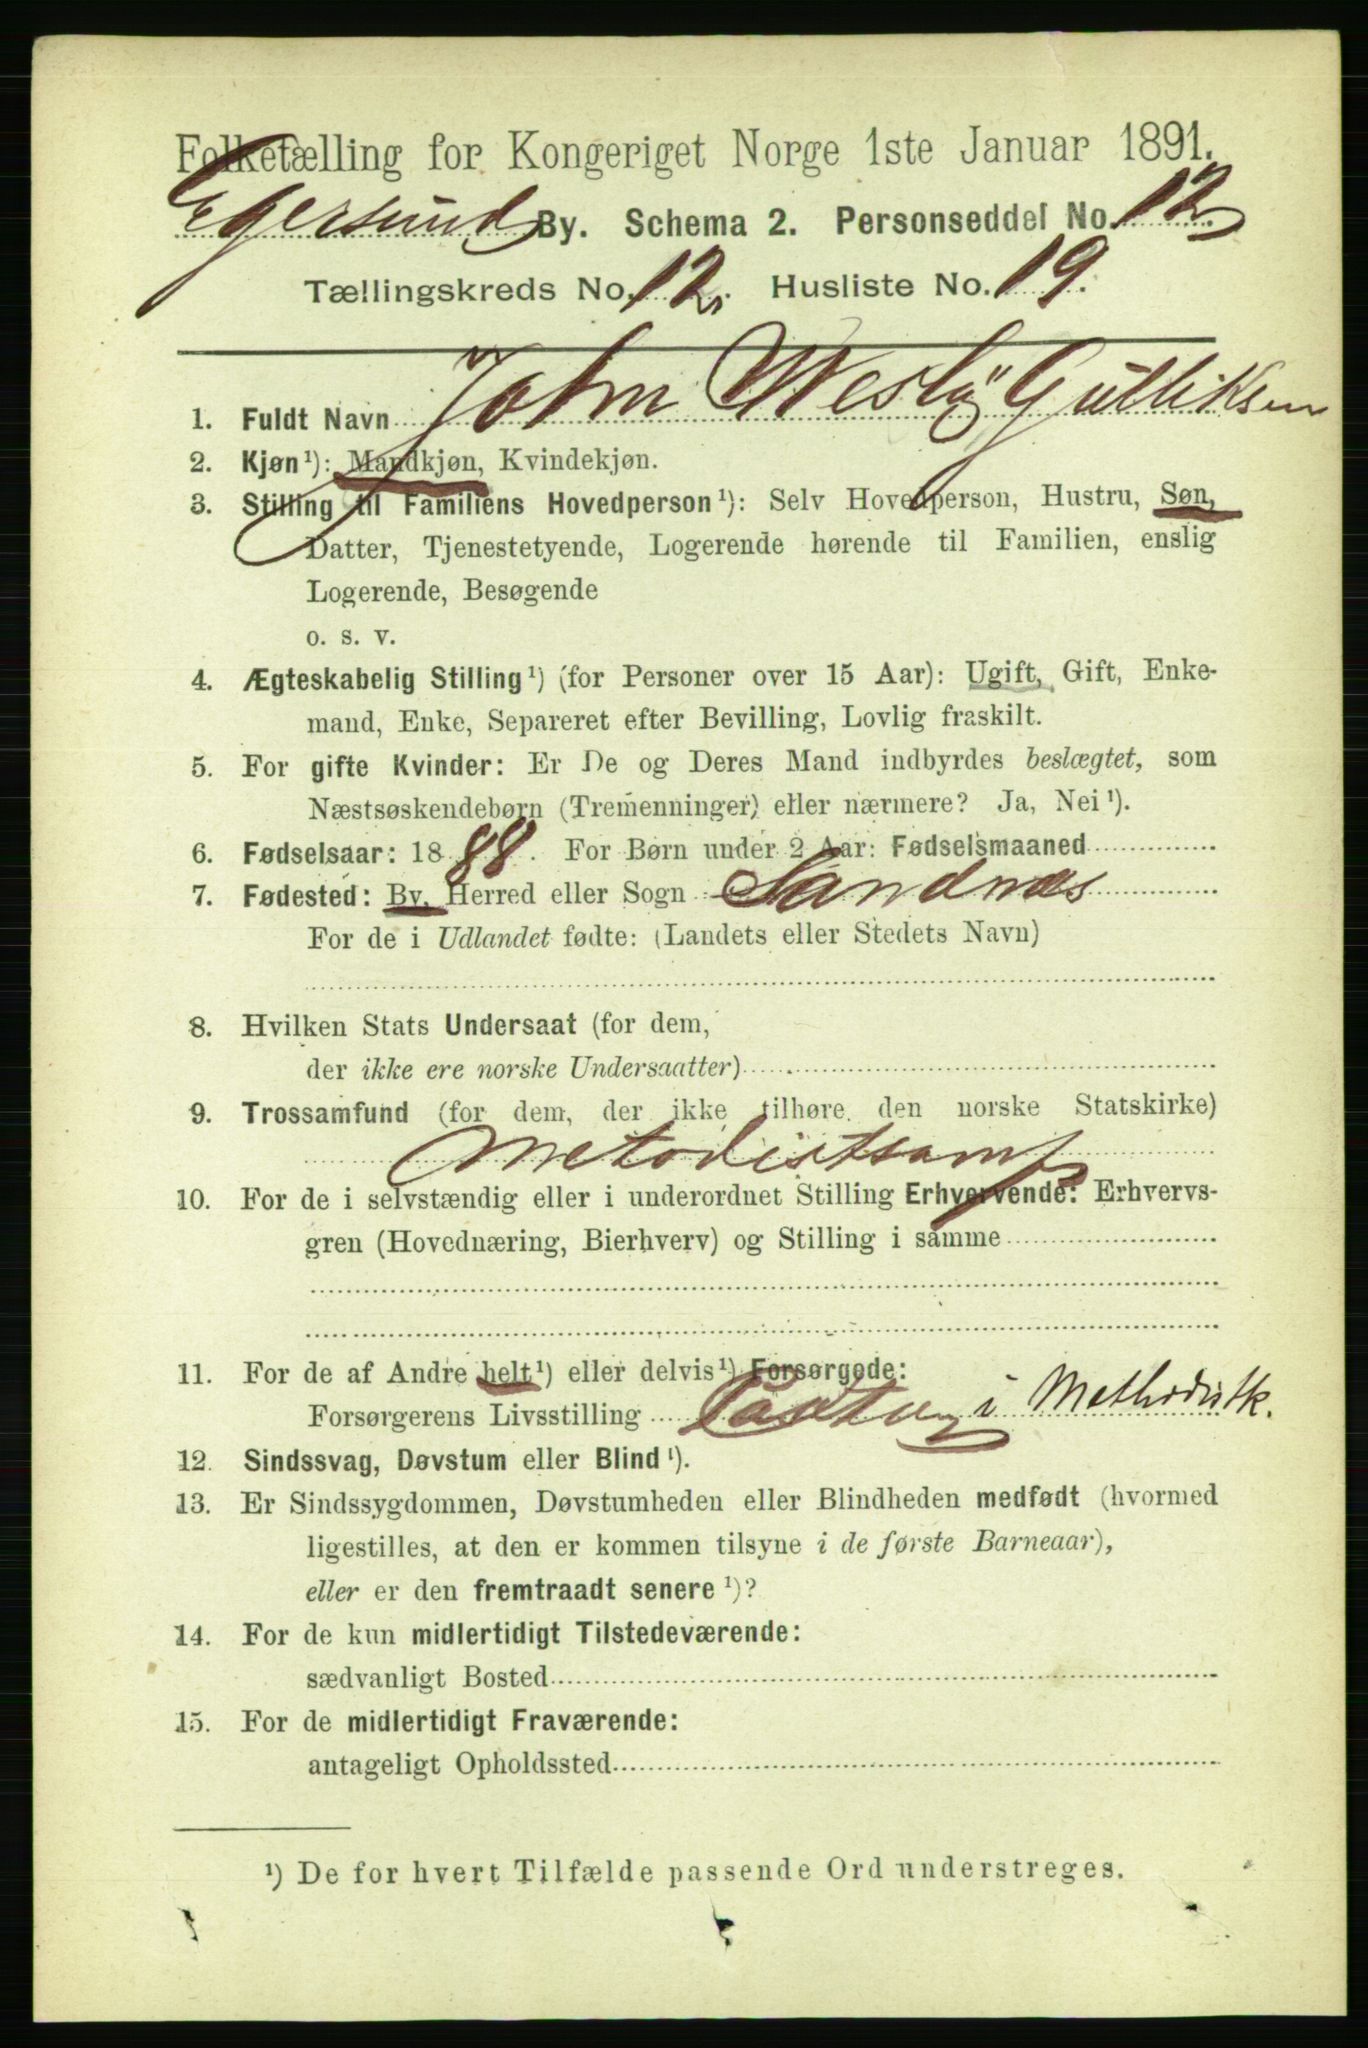 Folketælling for Kongeriget Norge 1ste Januar 1891.
Egersund By. Schema 2. Personseddel No. 12
Tællingskreds No. 12. Husliste No. 19.
1. Fuldt Navn John Wesly Gulliksen
2. Kjøn¹): Mandkjøn, Kvindekjøn.
3. Stilling til Familiens Hovedperson¹): Selv Hovedperson, Hustru, Søn,
Datter, Tjenestetyende, Logerende hørende til Familien, enslig
Logerende, Besøgende
o. s. v.
4. Ægteskabelig Stilling¹) (for Personer over 15 Aar): Ugift, Gift, Enke-
mand, Enke, Separeret efter Bevilling, Lovlig fraskilt.
5. For gifte Kvinder: Er De og Deres Mand indbyrdes beslægtet, som
Næstsøskendebørn (Tremenninger) eller nærmere? Ja, Nei¹).
6. Fødselsaar: 1888. For Børn under 2 Aar: Fødselsmaaned
7. Fødested: By, Herred eller Sogn Sandnæs
For de i Udlandet fødte: (Landets eller Stedets Navn)
8. Hvilken Stats Undersaat (for dem,
der ikke ere norske Undersaatter)
9. Trossamfund (for dem, der ikke tilhøre den norske Statskirke)
Metodistsamf
10. For de i selvstændig eller i underordnet Stilling Erhvervende: Erhvervs-
gren (Hovednæring, Bierhverv) og Stilling i samme
11. For de af Andre helt¹) eller delvis¹) Forsørgede:
Forsørgerens Livsstilling Pastor i Methodistk.
12. Sindssvag, Døvstum eller Blind¹).
13. Er Sindssygdommen, Døvstumheden eller Blindheden medfødt (hvormed
ligestilles, at den er kommen tilsyne i de første Barneaar),
eller er den fremtraadt senere¹)?
14. For de kun midlertidigt Tilstedeværende:
sædvanligt Bosted
15. For de midlertidigt Fraværende:
antageligt Opholdssted
¹) De for hvert Tilfælde passende Ord understreges.